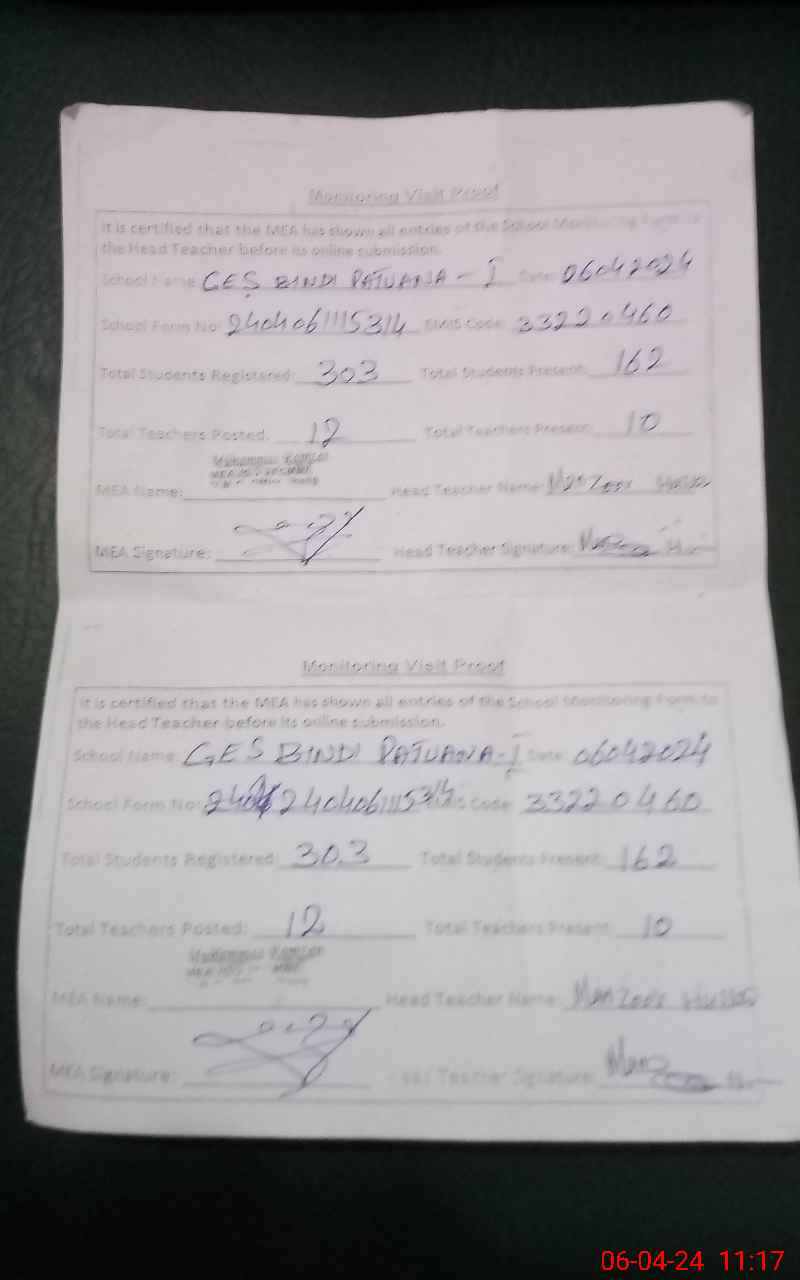 Monitoring Visit Proof
It is certified that the MEA has shown all entries of the School Monitoring Form to
the Head Teacher before its online submission.
School Name: GES BINDI PATUANA-I Date: 06042024
School Form No: 2404061115314 EMIS Code: 33220460
Total Students Registered: 303 Total Students Present: 162
Total Teachers Posted: 12 Total Teachers Present: 10
Muhammad Kamran
MEA Name: Head Teacher Name: Manzoor
MEA Signature: Head Teacher Signature:
Monitoring Visit Proof
It is certified that the MEA has shown all entries of the School Monitoring Form to
the Head Teacher before its online submission.
School Name: GES BINDI PATUANA-I Date: 06042024
School Form No: 2404061115314 Code: 33220460
Total Students Registered: 303 Total Students Present: 162
Total Teachers Posted: 12 Total Teachers Present: 10
Muhammad Kamran
MEA Name: Head Teacher Name: Manzoor
MEA Signature: Teacher Signature:
06-04-24 11:17